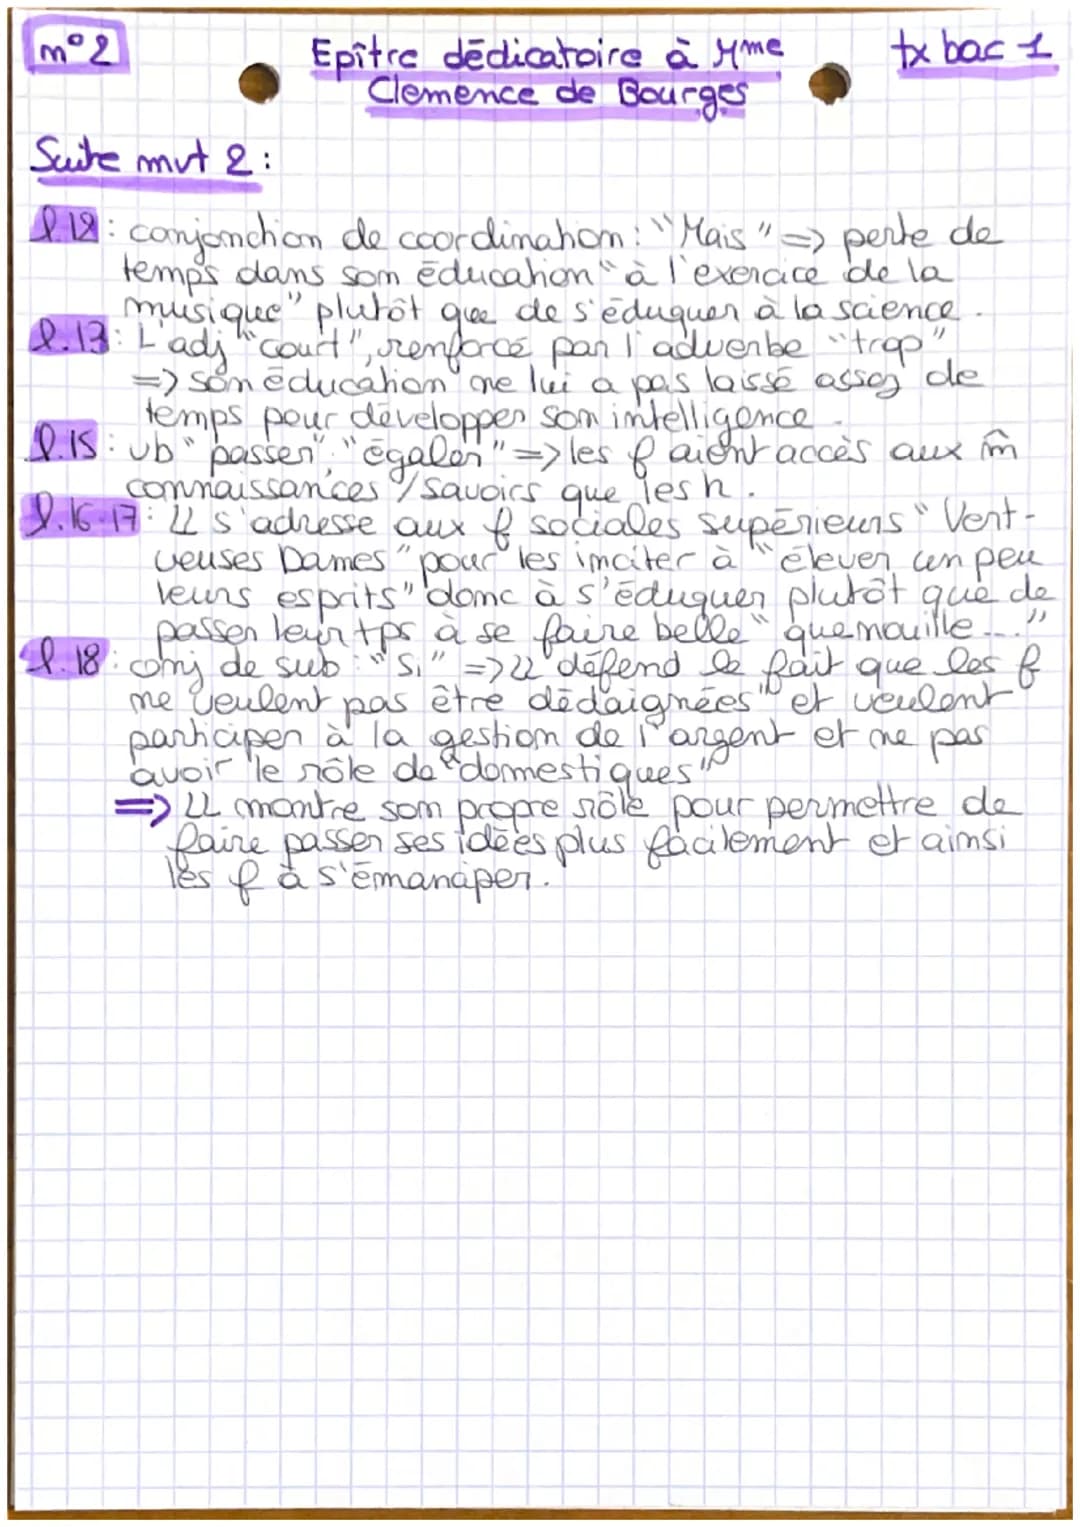 n°2
Epître dédicatoire à Mme
tx bac 1
Clemence de Bourges
Suite mvt 2 :
l.12 : conjonction de coordination : "Mais" => perte de
temps dans son éducation "à l'exercice de la
musique" plutôt que de s'éduquer à la science.
l.13 : L'adj "court", renforcé par l'adverbe "trop"
=> son éducation ne lui a pas laissé assez de
temps pour développer son intelligence.
l.15 : vb "passer", "égaler" => les f aient accès aux m̂
connaissances / savoirs que les h.
l.16-17 : LL s'adresse aux f sociales supérieurs "Vert-
ueuses Dames" pour les inciter à "élever un peu
leurs esprits" donc à s'éduquer plutôt que de
passer leur tps à se faire belle "quenouille..."
l.18 : conj de sub : "Si" => LL défend le fait que les f
ne veulent pas être dédaignées" et veulent
participer à la gestion de l'argent et ne pas
avoir le rôle de "domestiques"
=> LL montre son propre rôle pour permettre de
faire passer ses idées plus facilement et ainsi
les f à s'émanciper.